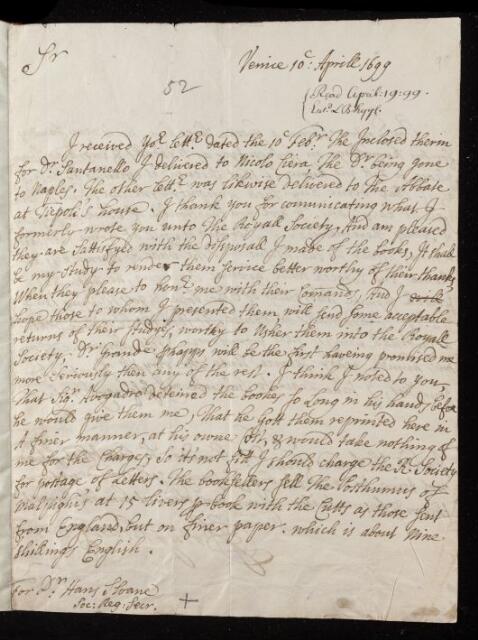 Sr
Venice 10c: Aprill 1699
52
Read April: 19: 99.
Ent.d LB. 12.
I received Yor. Lettr. dated the 10c Febr. The Inclosed therin
for Dr. Santanello I delivered to Nicolo Siera The Dr. being gone
to Naples. The other Lettr. was likwise delivered to The Abbate
at Tiepoli's house. I thank you for comunicating what I
formerly wrote you unto the Royall Society, And am pleased
they are Sattisfyed with the disposall I made of the books, It shall
be my study to render them service better worthy of their thanks
When they please to honr. me with their Comands, And I
hope those to whom I presented them will send some acceptable
returns of their Studys, worthy to Usher them into the Royall
Society. Dr. Grande phapps will be the first haveing promised me
more seriously then any of the rest. I think I noted to you,
That Sigr. Avogadro deteined the bookes so long in his hands, before
he would give them me, That he Gott them reprinted here in
A finer manner, at his owne Cost, & would take nothing of
me for the charges, So its not fitt I should charge the R. Society
for postage of Letters. The booksellers sell The Posthumus of
Malpighi's at 15 livers p book with the Cutts as those sent
from England, but on finer paper. which is about Nine
shillings English.
For Dr. Hans Sloane
Soc: Reg: Secr.
+